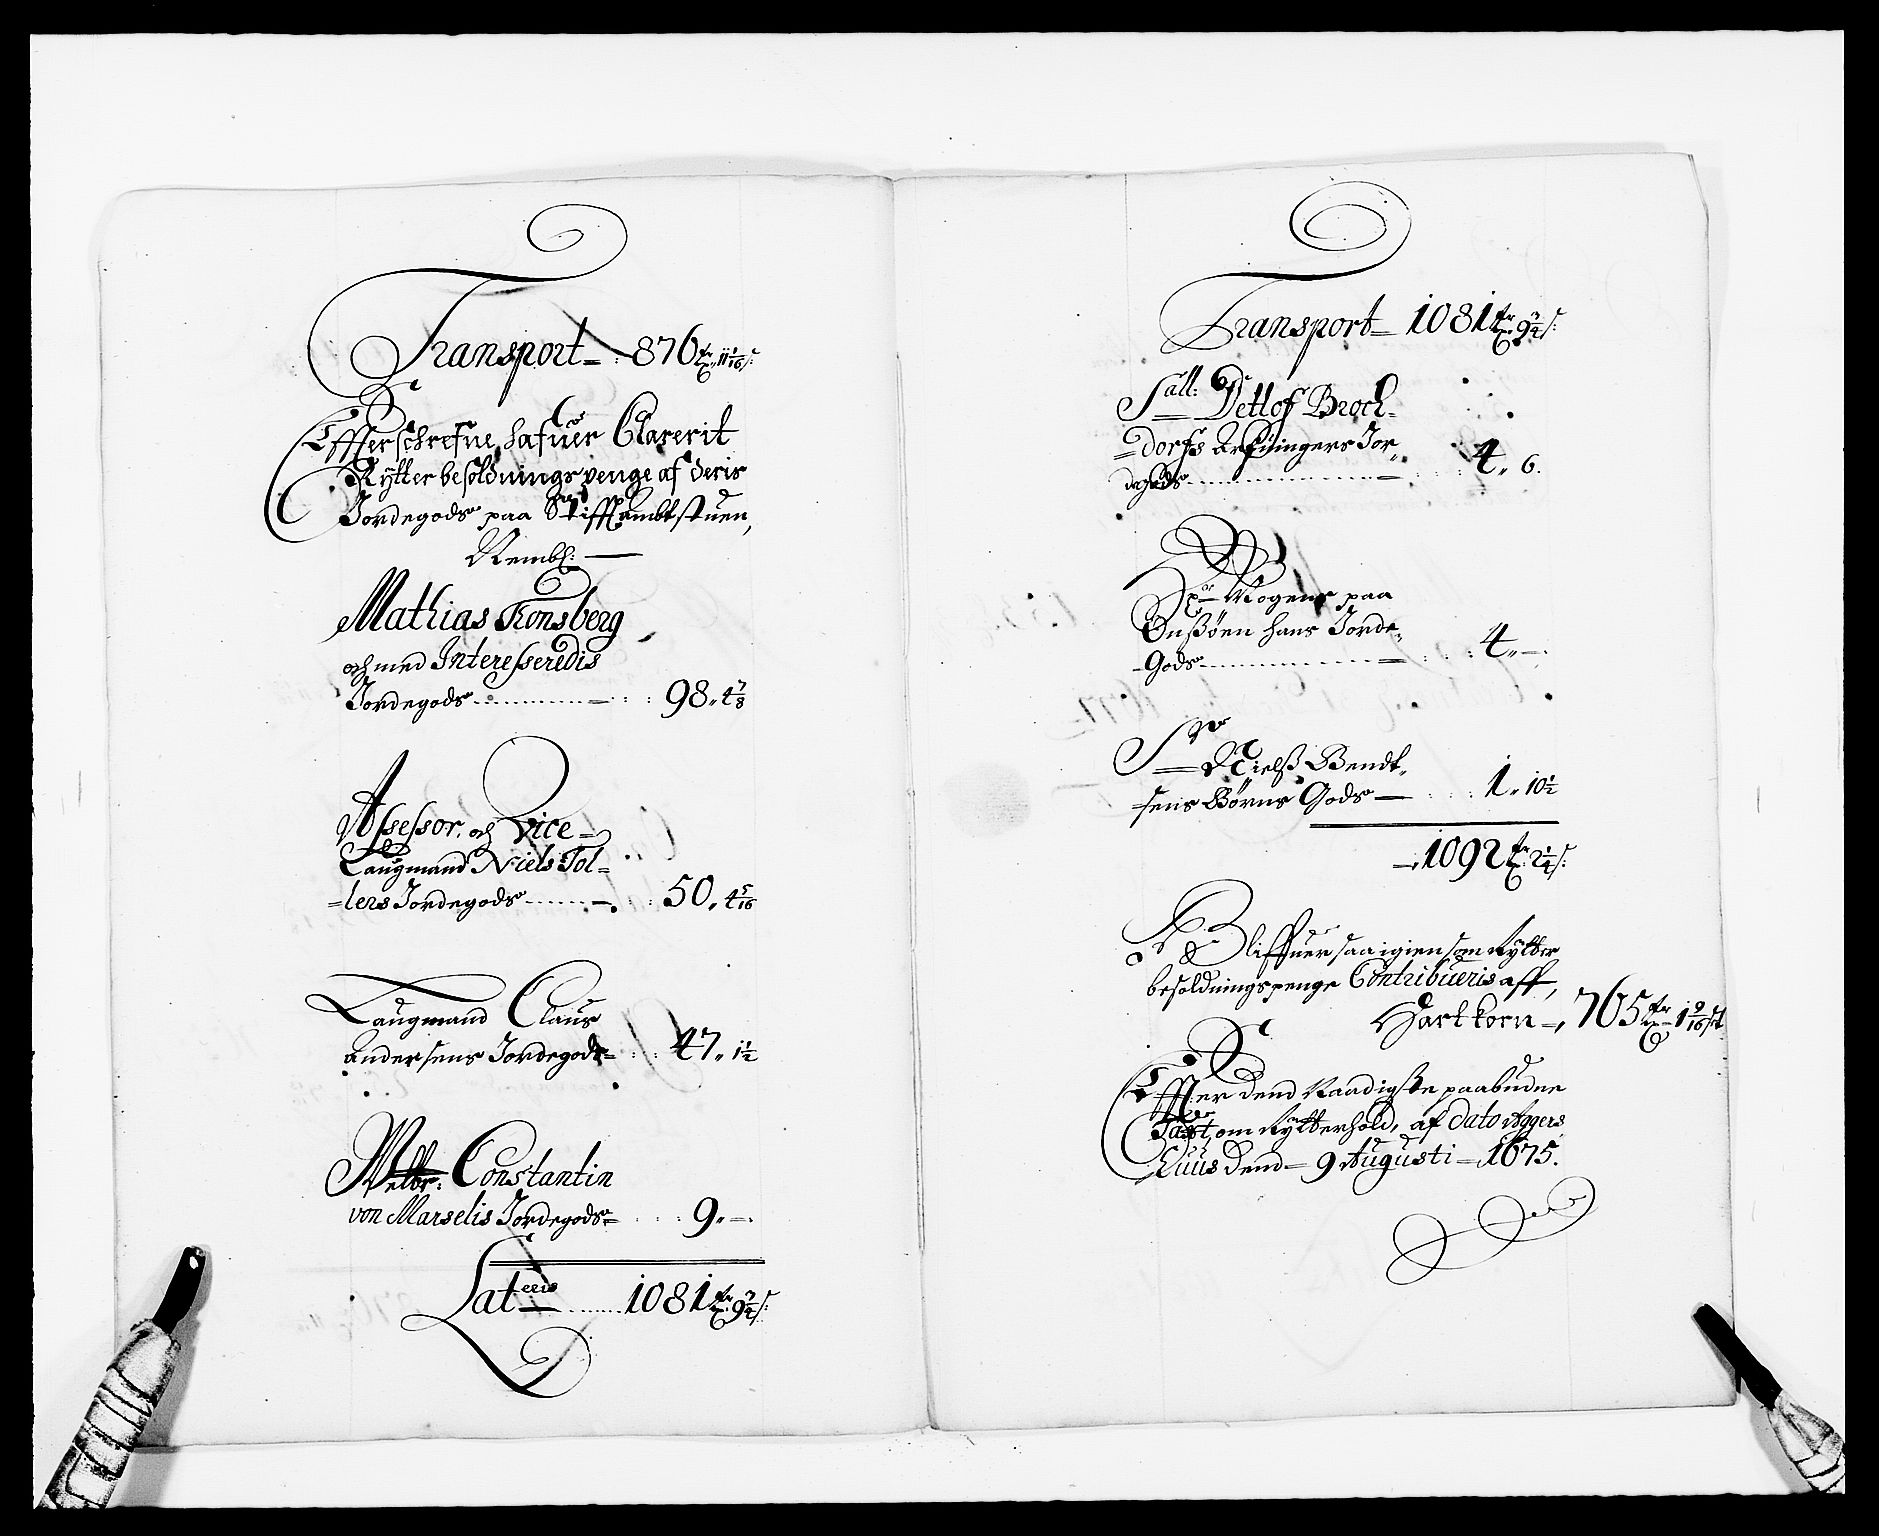 Transport 876 Tr 11 1/16 s:
Effterschrefne hafuer Clarerit
Rytter besoldnings penge af deris
Jordegods paa Stifftambtstuen,
Nembl:
Mathias Tonsberg
och med Interesseredis
Jordegods 98. 4 7/8
Assessor. och Vice-
Laugmand Niels Tol-
-lers Jordegods 50. 4 5/16
Laugmand Claus
andersens Jordegods 47. 1 1/2
Welbr: Constantin
von Marselis Jordegods 9. —
Lateris 1081 Tr 9 3/4 s:
Transport 1081 Tr 9 3/4 s:
Sall: Detlof Broch-
-dorfs Arfuingers Jor-
degods 4. 6.
Hr Mogens paa
Onsøen hans Jorde-
-Gods 4. —
Sr Nielss Bendt-
sens Børns Gods 1. 10 1/2
1092 Tr 2 1/4 s:
Bliffuer saa igien som Rytter
besoldningspenge Contribueris aff,
Hartkorn 765 Tr 1 9/16
Effter dend Naadigste paabudne
Taxt, om Rytterhold, af dato Aggers
Huus dend 9 Augusti 1675.